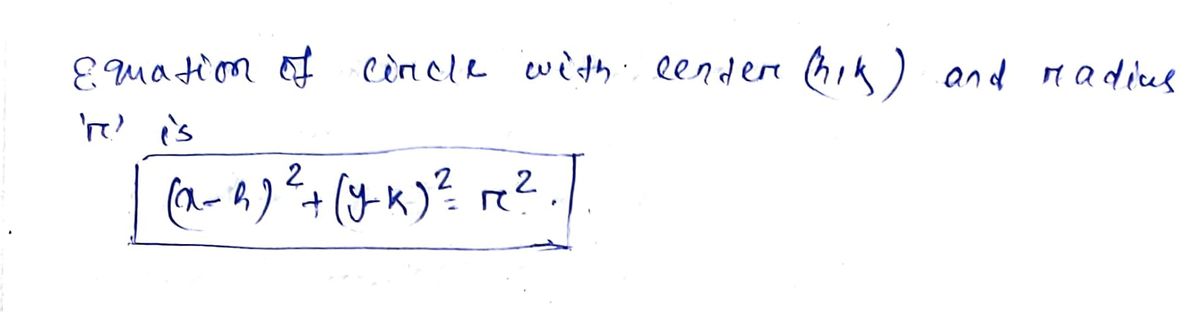 Equation of circle with center (h,k) and radius
'r' is
(x-h)²+(y-k)²= r².